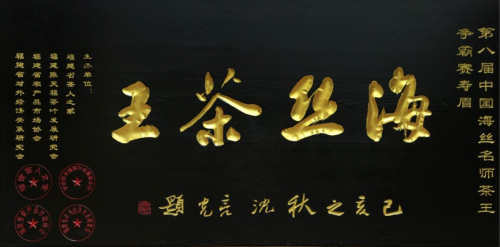 第八届中国海丝名师茶王
争霸赛寿眉
海丝茶王
己亥之秋沈言冗題
主办单位：
福建省茶人之家
福建张天福茶叶发展研究会
福建省农产品市场协会
福建省对外经济关系研究会